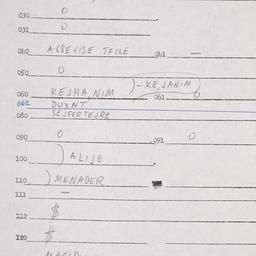 030 0
031 0
040 AGREVISE TFILE 041 —
050 0
060 KEJHA,NIM )-KE,JANIM
061 0
062 DUXNT
080 SEJFERTEJRE
090 0 091 0
100 ) ALIJE
110 ) MENADER
111 —
112 $
120 #